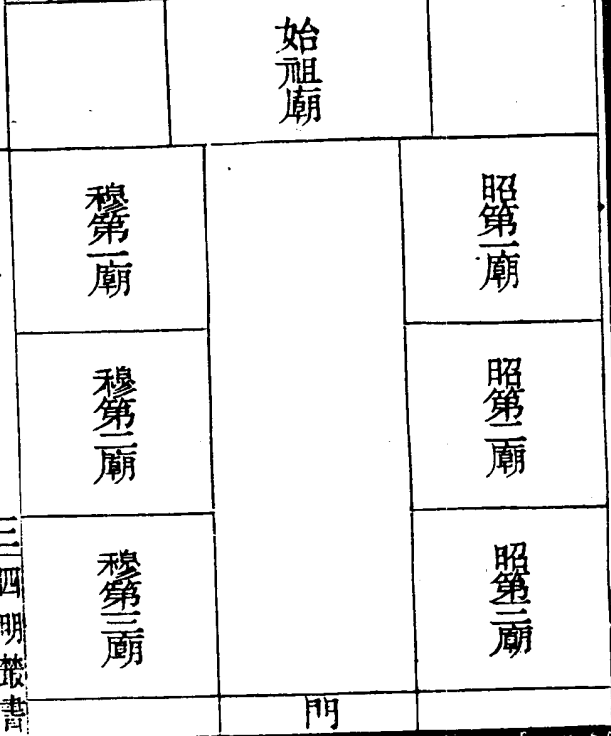 始祖廟
昭第一廟
昭第二廟
昭第三廟
穆第一廟
穆第二廟
穆第三廟
門
三
四明叢書